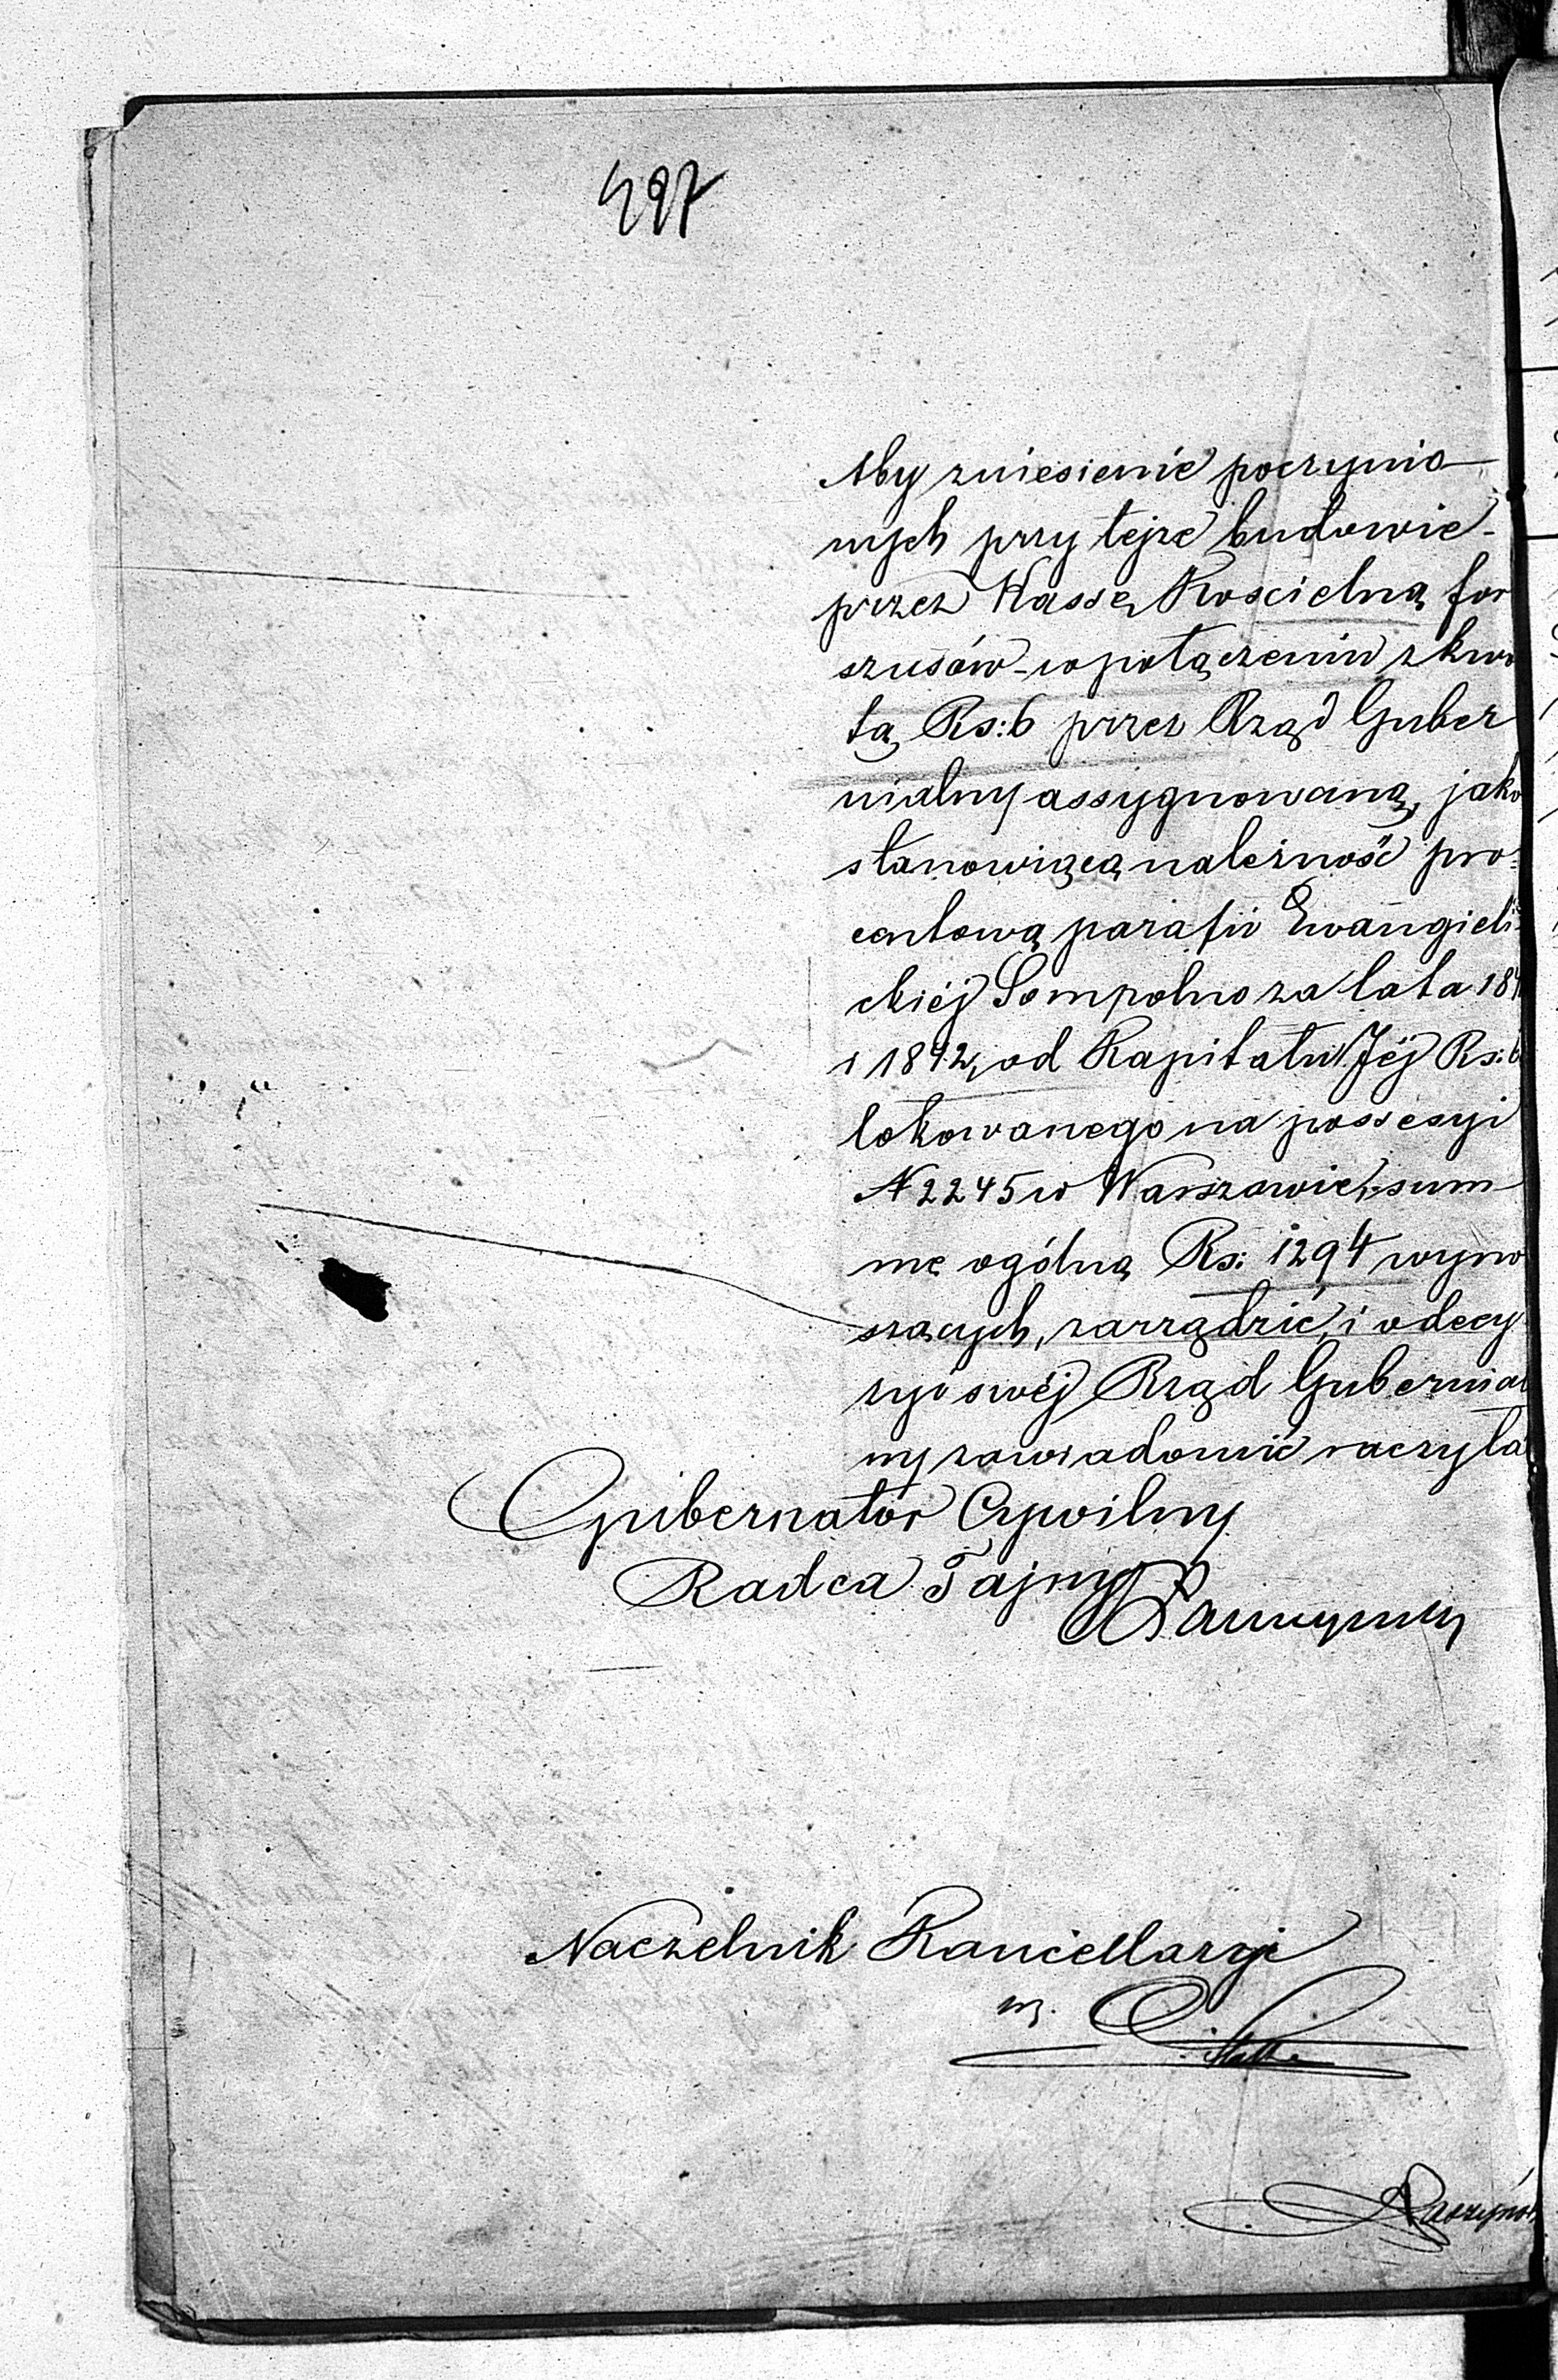 497
Aby zniesienie poczynio-
nych przy tejże budowie -
przez Kassę Kościelną for
szusów - w połączeniu z kwo
tą Rs: 6 przez Rząd Guber
nialny assygnowaną, jako
stanowiącą należność pro-
centową parafii Ewangieli
ckiéj Sompolno za lata 184
i 1842, od Kapitału Jéj Rs: 6
lokowanego na possesyi
N 2245 w Warszawie, sum
mę ogólną Rs: 1294 wyno
szących, zarządzić, i o decy
zyi swéj Rząd Gubernial
ny zawiadomić raczyła
Gubernator Cywilny
Radca Tajny
Naczelnik Kancellaryi